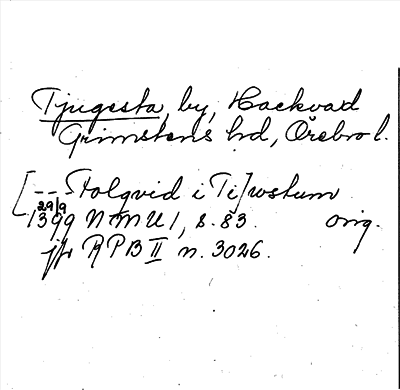 Tjugesta, by, Hackvad
Grimstens hd, Örebro l.
[---Folqvid i Ti]wstum
29/9
1399 NMU 1, s. 83. orig.
jfr RPB II n. 3026.